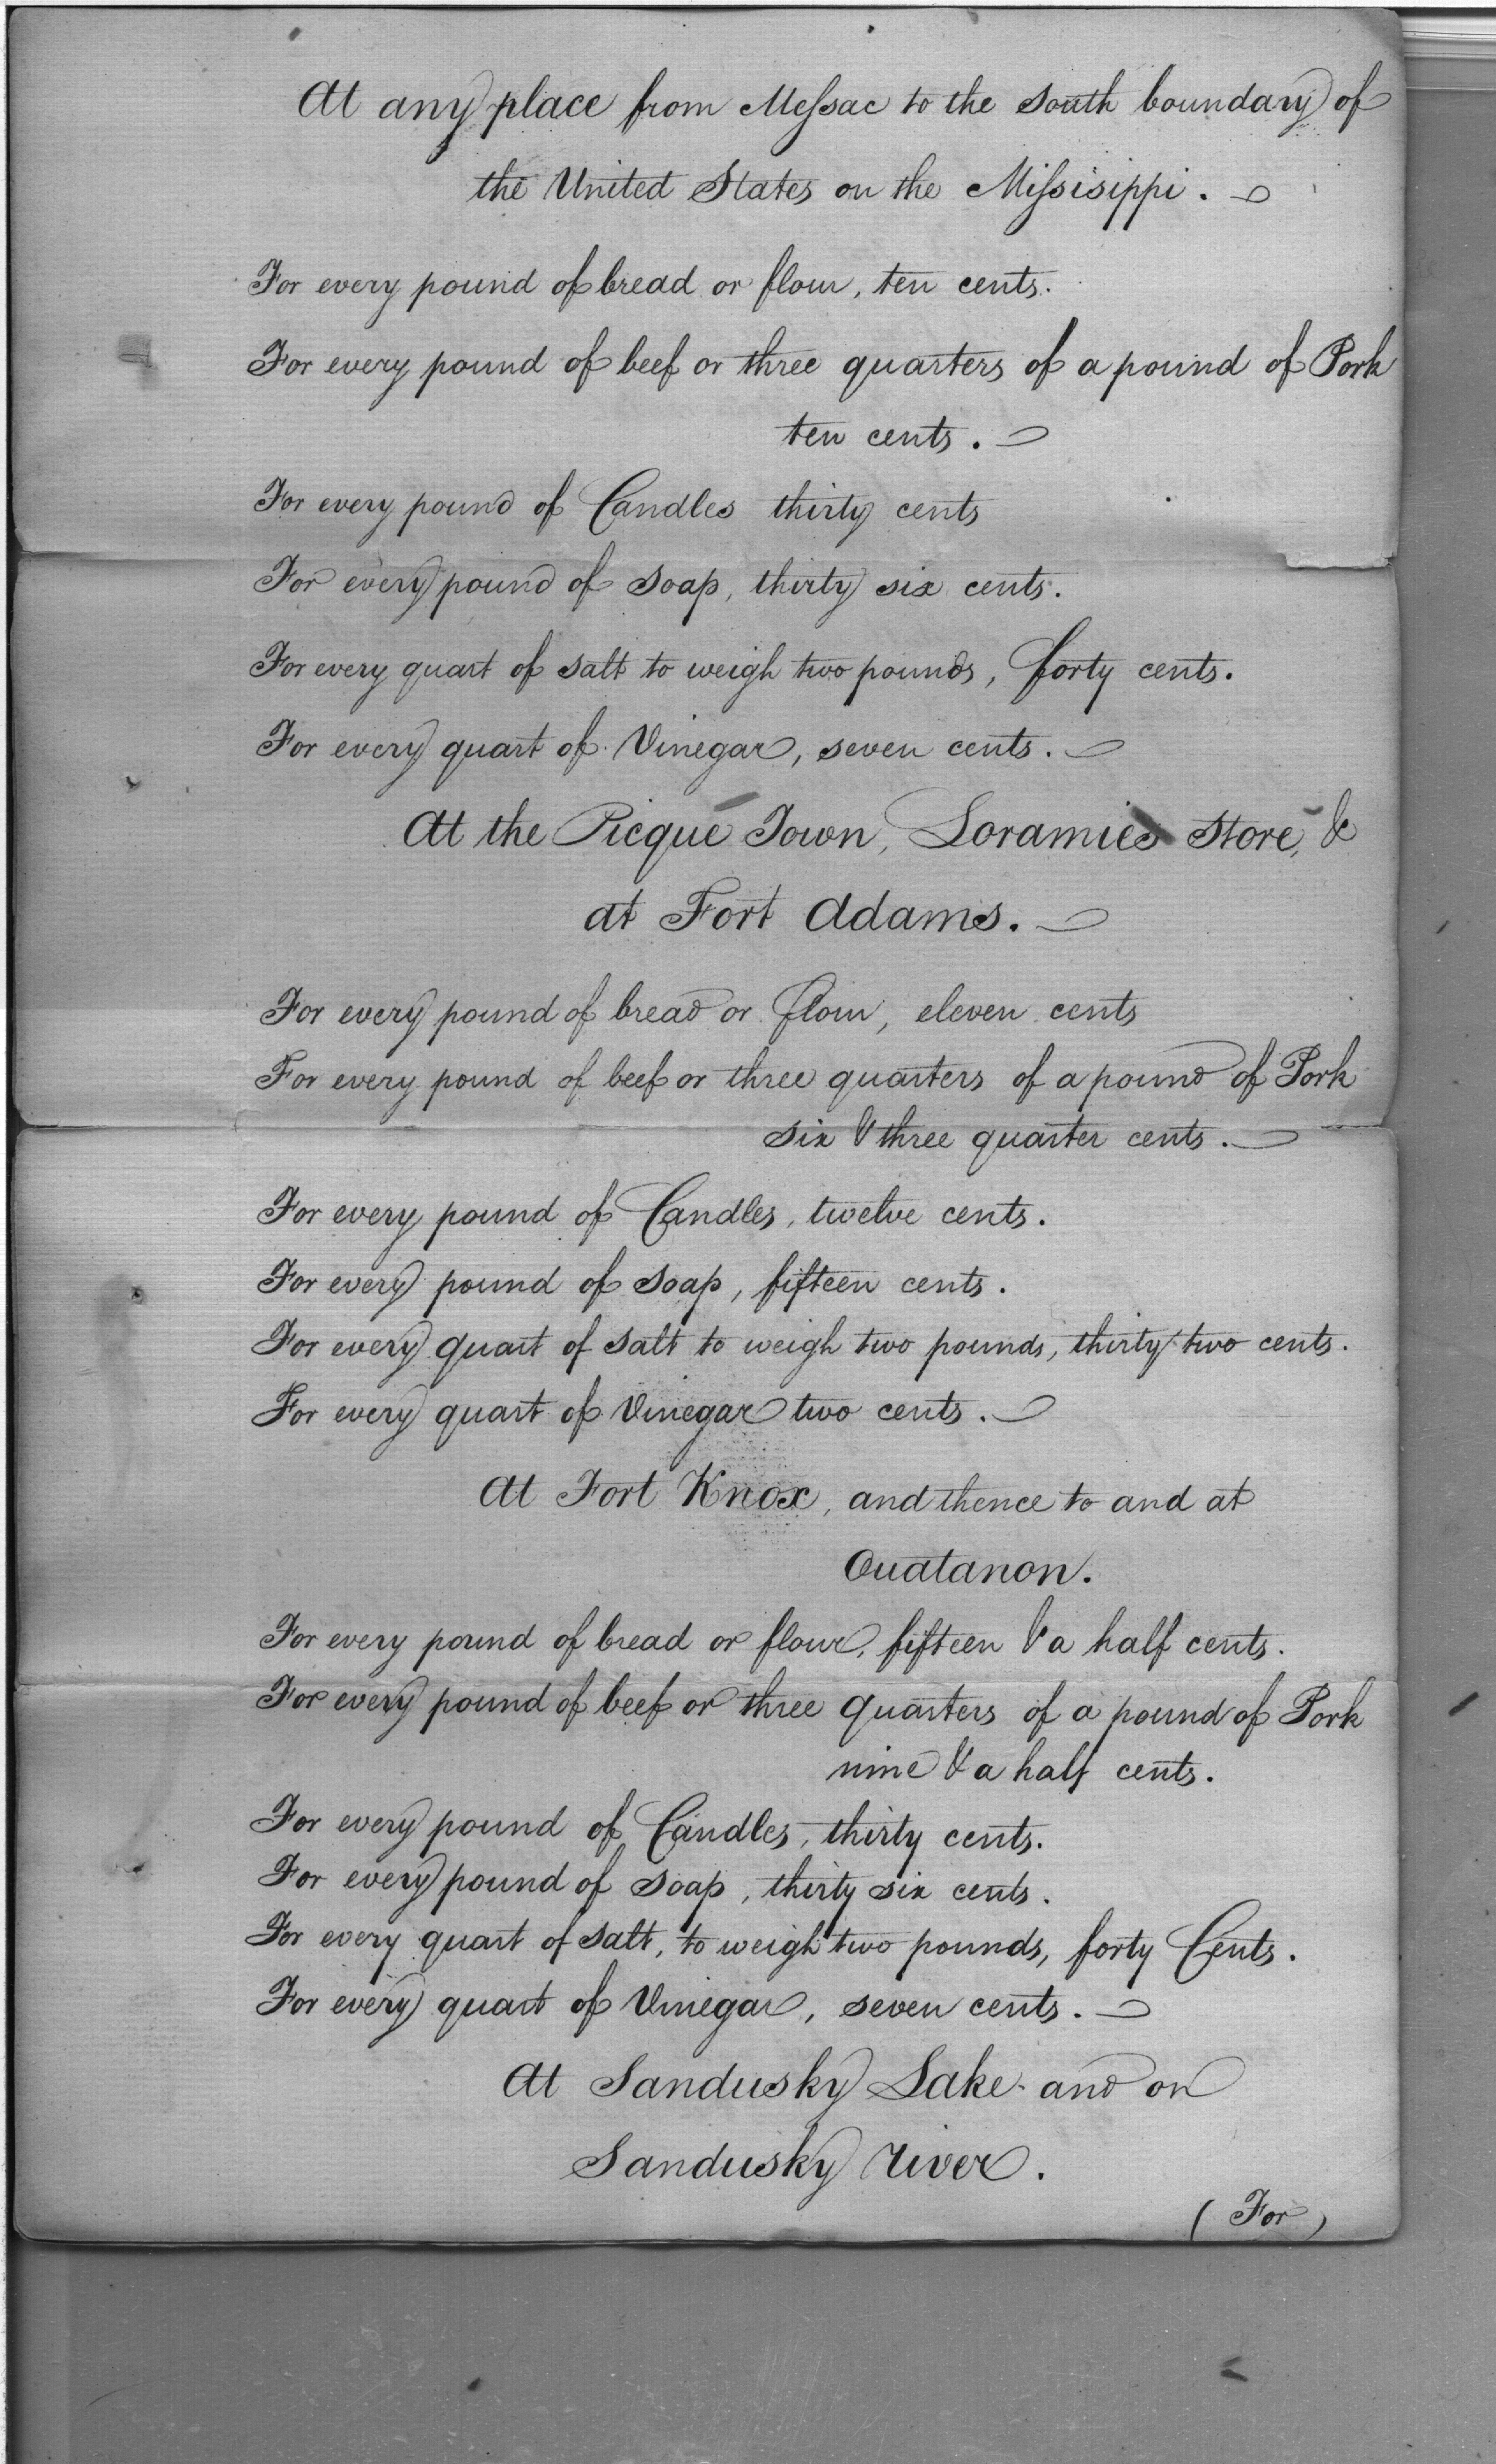 At any place from Messac to the south boundary of
the United States on the Missisippi.
For every pound of bread or flour, ten cents.
For every pound of beef or three quarters of a pound of Pork
ten cents.
For every pound of Candles thirty cents
For every pound of soap, thirty six cents.
For every quart of salt to weigh two pounds, forty cents.
For every quart of Vinegar, seven cents.
At the Picque Town, Loramies Store, &
at Fort Adams.
For every pound of bread or flour, eleven cents
For every pound of beef or three quarters of a pound of Pork
six & three quarter cents.
For every pound of Candles, twelve cents.
For every pound of soap, fifteen cents.
For every quart of salt to weigh two pounds, thirty two cents.
For every quart of Vinegar two cents.
At Fort Knox, and thence to and at
Ouatanon.
For every pound of bread or flour, fifteen & a half cents.
For every pound of beef or three quarters of a pound of Pork
nine & a half cents.
For every pound of Candles, thirty cents.
For every pound of soap, thirty six cents.
For every quart of salt, to weigh two pounds, forty Cents.
For every quart of Vinegar, seven cents.
At Sandusky Lake and on
Sandusky River.
(For)